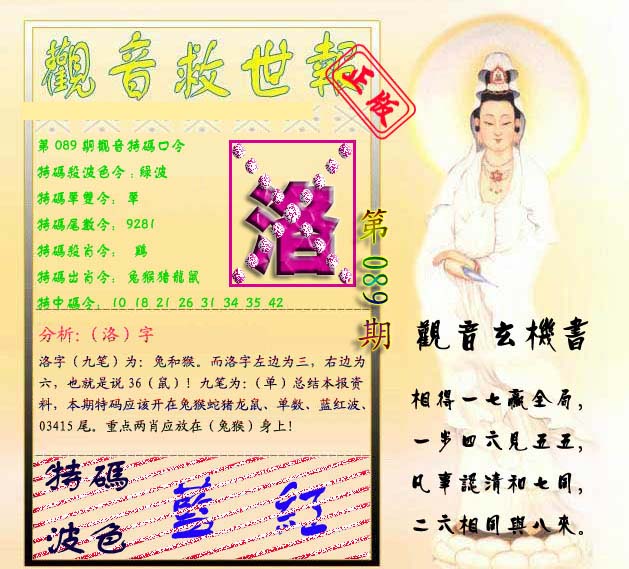 觀音救世報
正版
第089期觀音特碼口令
特碼殺波色令：綠波
特碼單雙令： 單
特碼尾數令： 9281
特碼殺肖令： 鷄
特碼出肖令： 兔猴猪龍鼠
特中碼令： 10 18 21 26 31 34 35 42
洛
第089期
分析:（洛）字
洛字（九笔）为：兔和猴。而洛字左边为三，右边为
六，也就是说36（鼠）！九笔为：（单）总结本报资
料，本期特码应该开在兔猴蛇猪龙鼠、单数、蓝红波、
03415尾。重点两肖应放在（兔猴）身上！
特碼
波色
藍 紅
觀音玄機書
相得一七贏全局，
一步四六見五五，
凡事認清和七同，
二六相同與八來。